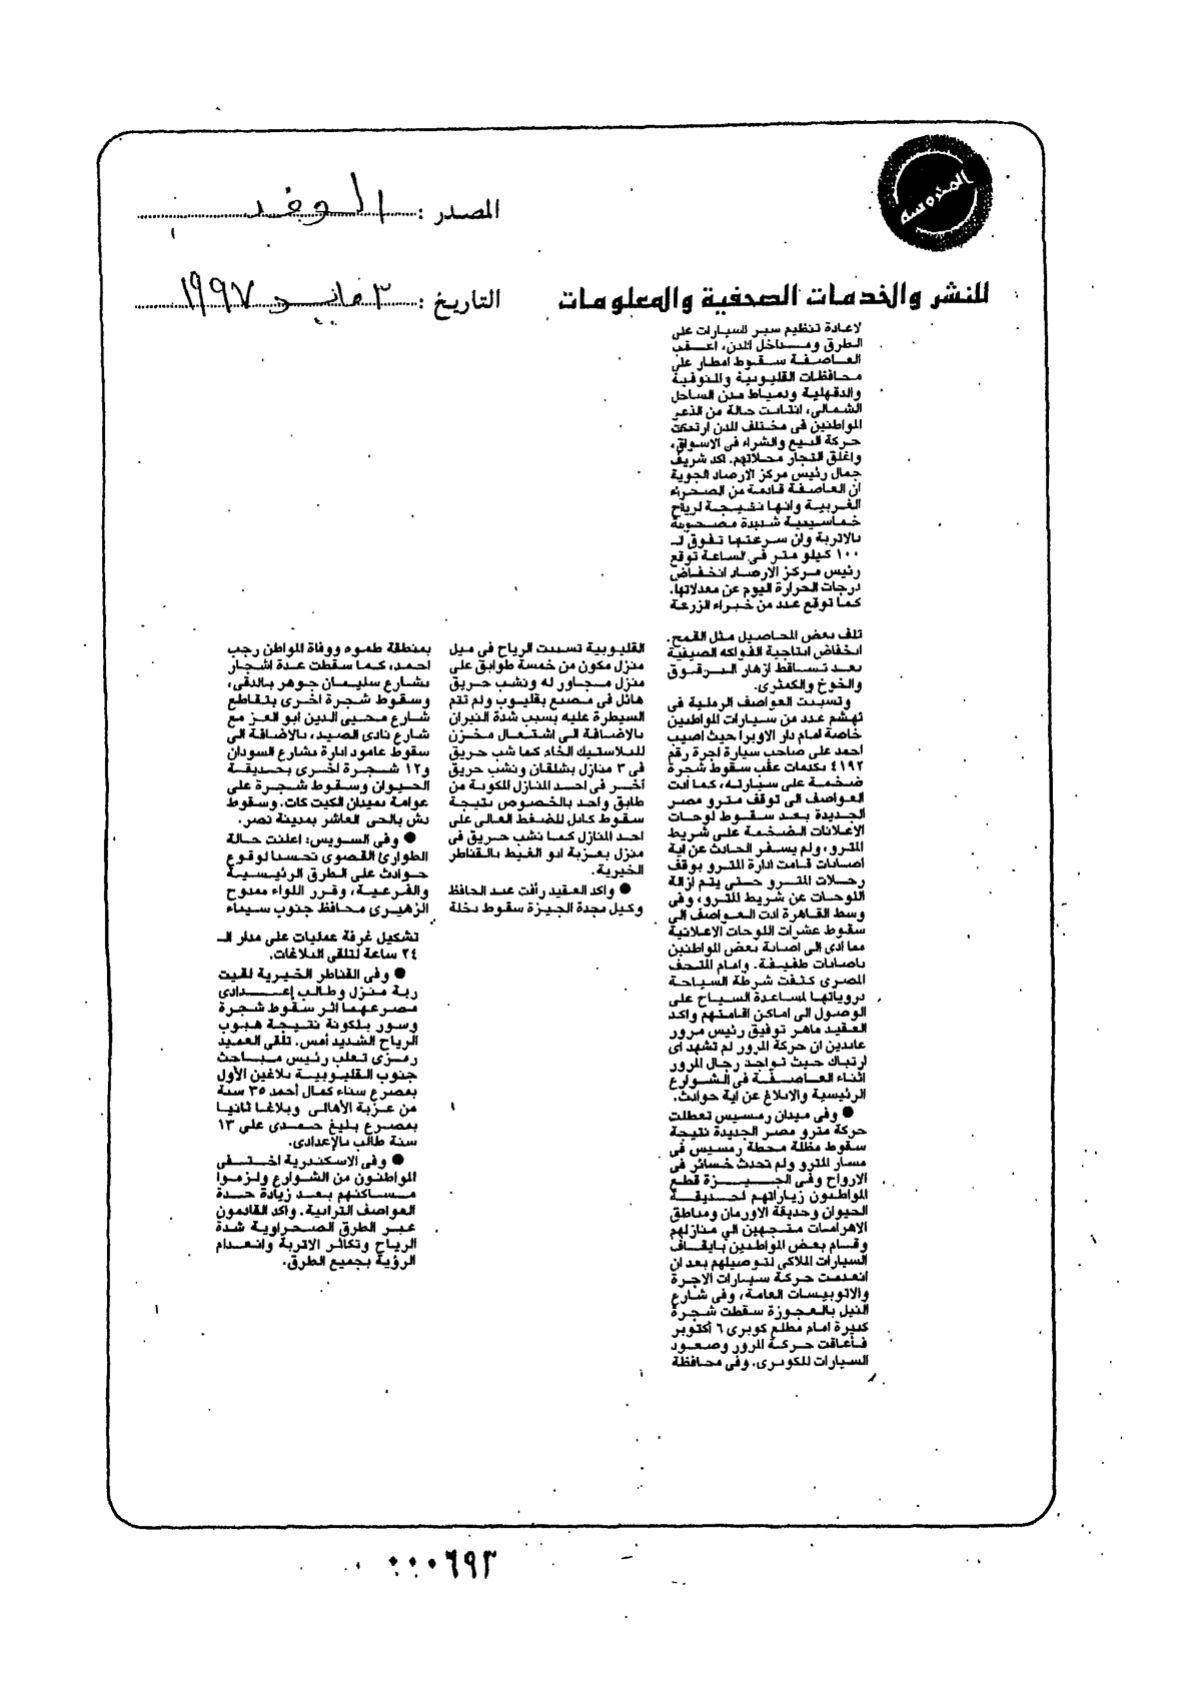 المحروسة
المصدر : الوفد
للنشر والخدمات الصحفية والمعلومات
التاريخ : ٣ مايو ١٩٩٧
لاعادة تنظيم سير السيارات على
الطرق ومداخل المدن، اعقب
العاصفة سقوط امطار على
محافظات القليوبية والمنوفية
والدقهلية ودمياط مدن الساحل
الشمالى، انتابت حالة من الذعر
المواطنين فى مختلف المدن ارتبكت
حركة البيع والشراء فى الاسواق،
واغلق التجار محلاتهم. اكد شريف
جمال رئيس مركز الارصاد الجوية
ان العاصفة قادمة من الصحراء
الغربية وانها نتيجة لرياح
خماسينية شديدة مصحوبة
بالاتربة وان سرعتها تفوق لـ
١٠٠ كيلو متر فى الساعة توقع
رئيس مركز الارصاد انخفاض
درجات الحرارة اليوم عن معدلاتها.
كما توقع عدد من خبراء الزرعة
تلف بعض المحاصيل مثل القمح.
انخفاض انتاجية الفواكه الصيفية
بعد تساقط ازهار البرقوق
والخوخ والكمثرى.
وتسببت العواصف الرملية فى
تهشم عدد من سيارات المواطنين
خاصة امام دار الاوبرا حيث اصيب
احمد على صاحب سيارة اجرة رقم
٤١٩٢ بكدمات عقب سقوط شجرة
ضخمة على سيارته، كما أدت
العواصف الى توقف مترو مصر
الجديدة بعد سقوط لوحات
الاعلانات الضخمة على شريط
المترو، ولم يسفر الحادث عن اية
اصابات قامت ادارة المترو بوقف
رحلات المترو حتى يتم ازالة
اللوحات عن شريط المترو، وفى
وسط القاهرة ادت العواصف الى
سقوط عشرات اللوحات الاعلانية
مما ادى الى اصابة بعض المواطنين
باصابات طفيفة. وامام المتحف
المصرى كثفت شرطة السياحة
دورياتها لمساعدة السياح على
الوصول الى اماكن اقامتهم واكد
العقيد ماهر توفيق رئيس مرور
عابدين ان حركة المرور لم تشهد أى
ارتباك حيث تواجد رجال المرور
اثناء العاصفة فى الشوارع
الرئيسية والابلاغ عن اية حوادث.
● وفى ميدان رمسيس تعطلت
حركة مترو مصر الجديدة نتيجة
سقوط مظلة محطة رمسيس فى
مسار المترو ولم تحدث خسائر فى
الارواح وفى الجيزة قطع
المواطنون زياراتهم لحديقة
الحيوان وحديقة الاورمان ومناطق
الاهرامات متجهين الى منازلهم
وقام بعض المواطنين بايقاف
السيارات الملاكى لتوصيلهم بعد ان
انعدمت حركة سيارات الاجرة
والاتوبيسات العامة، وفى شارع
النيل بالعجوزة سقطت شجرة
كبيرة امام مطلع كوبرى ٦ أكتوبر
فأعاقت حركة المرور وصعود
السيارات للكوبرى. وفى محافظة
القليوبية تسببت الرياح فى ميل
منزل مكون من خمسة طوابق على
منزل مجاور له ونشب حريق
هائل فى مصنع بقليوب ولم تتم
السيطرة عليه بسبب شدة النيران
بالاضافة الى اشتعال مخزن
للبلاستيك الخام كما شب حريق
فى ٣ منازل بشلقان ونشب حريق
أخر فى احد المنازل المكونة من
طابق واحد بالخصوص نتيجة
سقوط كابل للضغط العالى على
احد المنازل كما نشب حريق فى
منزل بعزبة ابو الغيط بالقناطر
الخيرية.
● واكد العقيد رأفت عبد الحافظ
وكيل نجدة الجيزة سقوط نخلة
بمنطقة طموه ووفاة المواطن رجب
احمد، كما سقطت عدة اشجار
بشارع سليمان جوهر بالدقى،
وسقوط شجرة اخرى بتقاطع
شارع محيى الدين ابو العز مع
شارع نادى الصيد، بالاضافة الى
سقوط عامود انارة بشارع السودان
و١٢ شجرة اخرى بحديقة
الحيوان وسقوط شجرة على
عوامة بميدان الكيت كات. وسقوط
دش بالحى العاشر بمدينة نصر.
● وفى السويس: اعلنت حالة
الطوارئ القصوى تحسبا لوقوع
حوادث على الطرق الرئيسية
والفرعية، وقرر اللواء ممدوح
الزهيرى محافظ جنوب سيناء
تشكيل غرفة عمليات على مدار الـ
٢٤ ساعة لتلقى البلاغات.
● وفى القناطر الخيرية لقيت
ربة منزل وطالب إعدادى
مصرعهما اثر سقوط شجرة
وسور بلكونة نتيجة هبوب
الرياح الشديد أمس. تلقى العميد
رمزى تعلب رئيس مباحث
جنوب القليوبية بلاغين الأول
بمصرع سناء كمال أحمد ٣٥ سنة
من عزبة الأهالى وبلاغا ثانيا
بمصرع بليغ حمدى على ١٣
سنة طالب بالإعدادى.
● وفى الاسكندرية اختفى
المواطنون من الشوارع ولزموا
مساكنهم بعد زيادة حدة
العواصف الترابية. واكد القادمون
عبر الطرق الصحراوية شدة
الرياح وتكاثر الاتربة وانعدام
الرؤية بجميع الطرق.
٠٠٠٦٩٣